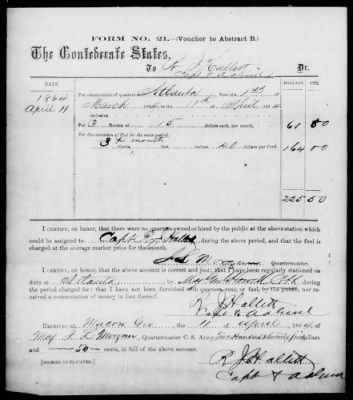 FORM NO. 21.—(Voucher to Abstract B.)
The Confederate States,
To R. J. Hallett Dr.
Capt & adjmt
DATE. DOLLARS CTS.
1864
April 11
For commutation of quarters at Atlanta from the 1st of
March to the 1st April 1864
inclusive:
For 3 Rooms at 15 61 50
For Commutation of Fuel for the same period:
3 month
40 dollars per Cord, 164 00
225.50
I CERTIFY, on honor, that there were no quarters owned or hired by the public at the above station which
could be assigned to Capt R. J. Hallett during the above period, and that the fuel is
charged at the average market price for the month.
Quartermaster.
I CERTIFY, on honor, that the above account is correct and just; that I have been regularly stationed on
duty at Atlanta by
during the period charged for; that I have not been furnished with quarters, rent, or fuel, by the public, nor received
commutation of money in lieu thereof.
R J Hallett
Capt & adjmt
RECEIVED at Macon Geo the 11 of April 1864, of
Maj S L Morgan Quartermaster C. S. Army, Two Hundred & twenty five
dollars and 50 cents, in full of the above account.
[SIGNED DUPLICATES.]
R J Hallett
Capt & adjmt